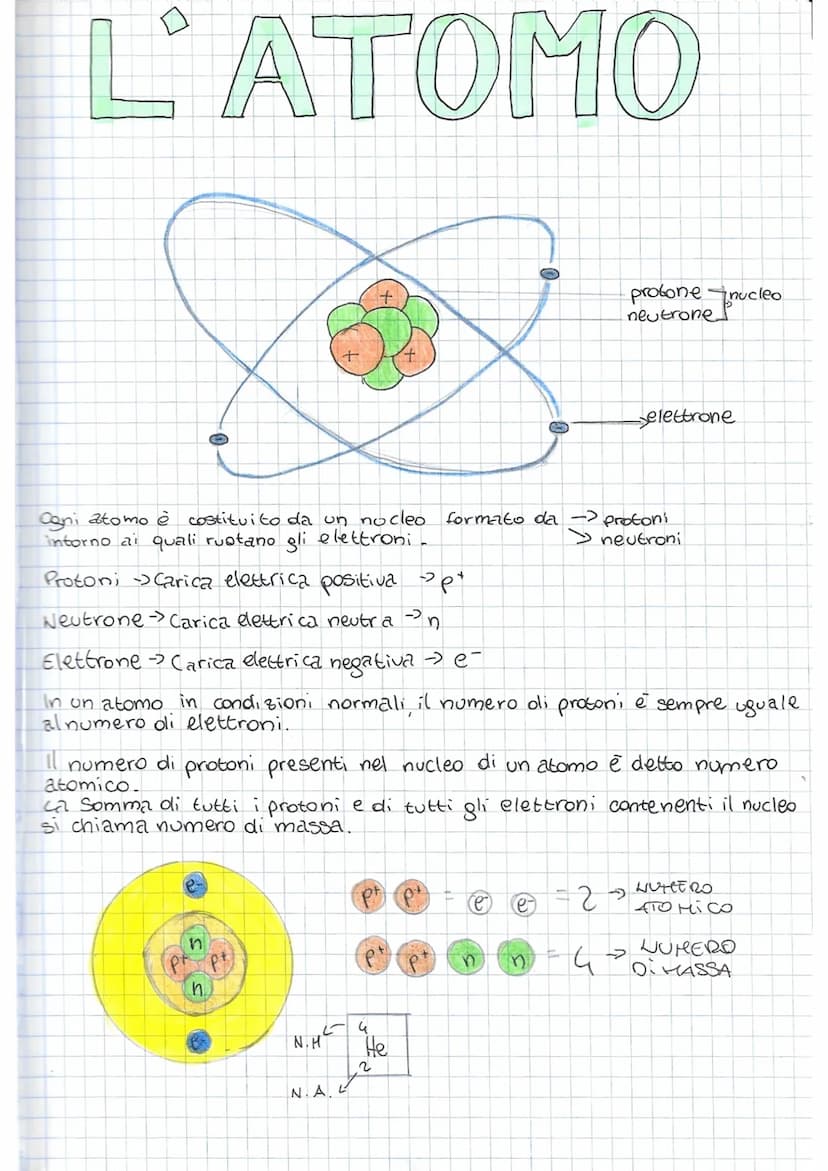 L'ATOMO
+
+
+
-
-
-
protone
neutrone
nucleo
elettrone
Ogni atomo è costituito da un nucleo formato da -> protoni
intorno ai quali ruotano gli elettroni. -> neutroni
Protoni -> Carica elettrica positiva -> p+
Neutrone -> Carica elettrica neutra -> n
Elettrone -> Carica elettrica negativa -> e-
In un atomo in condizioni normali, il numero di protoni è sempre uguale
al numero di elettroni.
Il numero di protoni presenti nel nucleo di un atomo è detto numero
atomico.
La somma di tutti i protoni e di tutti gli elettroni contenenti il nucleo
si chiama numero di massa.
e-
n
p+ p+
n
e-
p+ p+ = e- e- = 2 -> NUMERO
ATOMICO
p+ p+ n n = 4 -> NUMERO
DI MASSA
N.M
4
He
2
N.A.